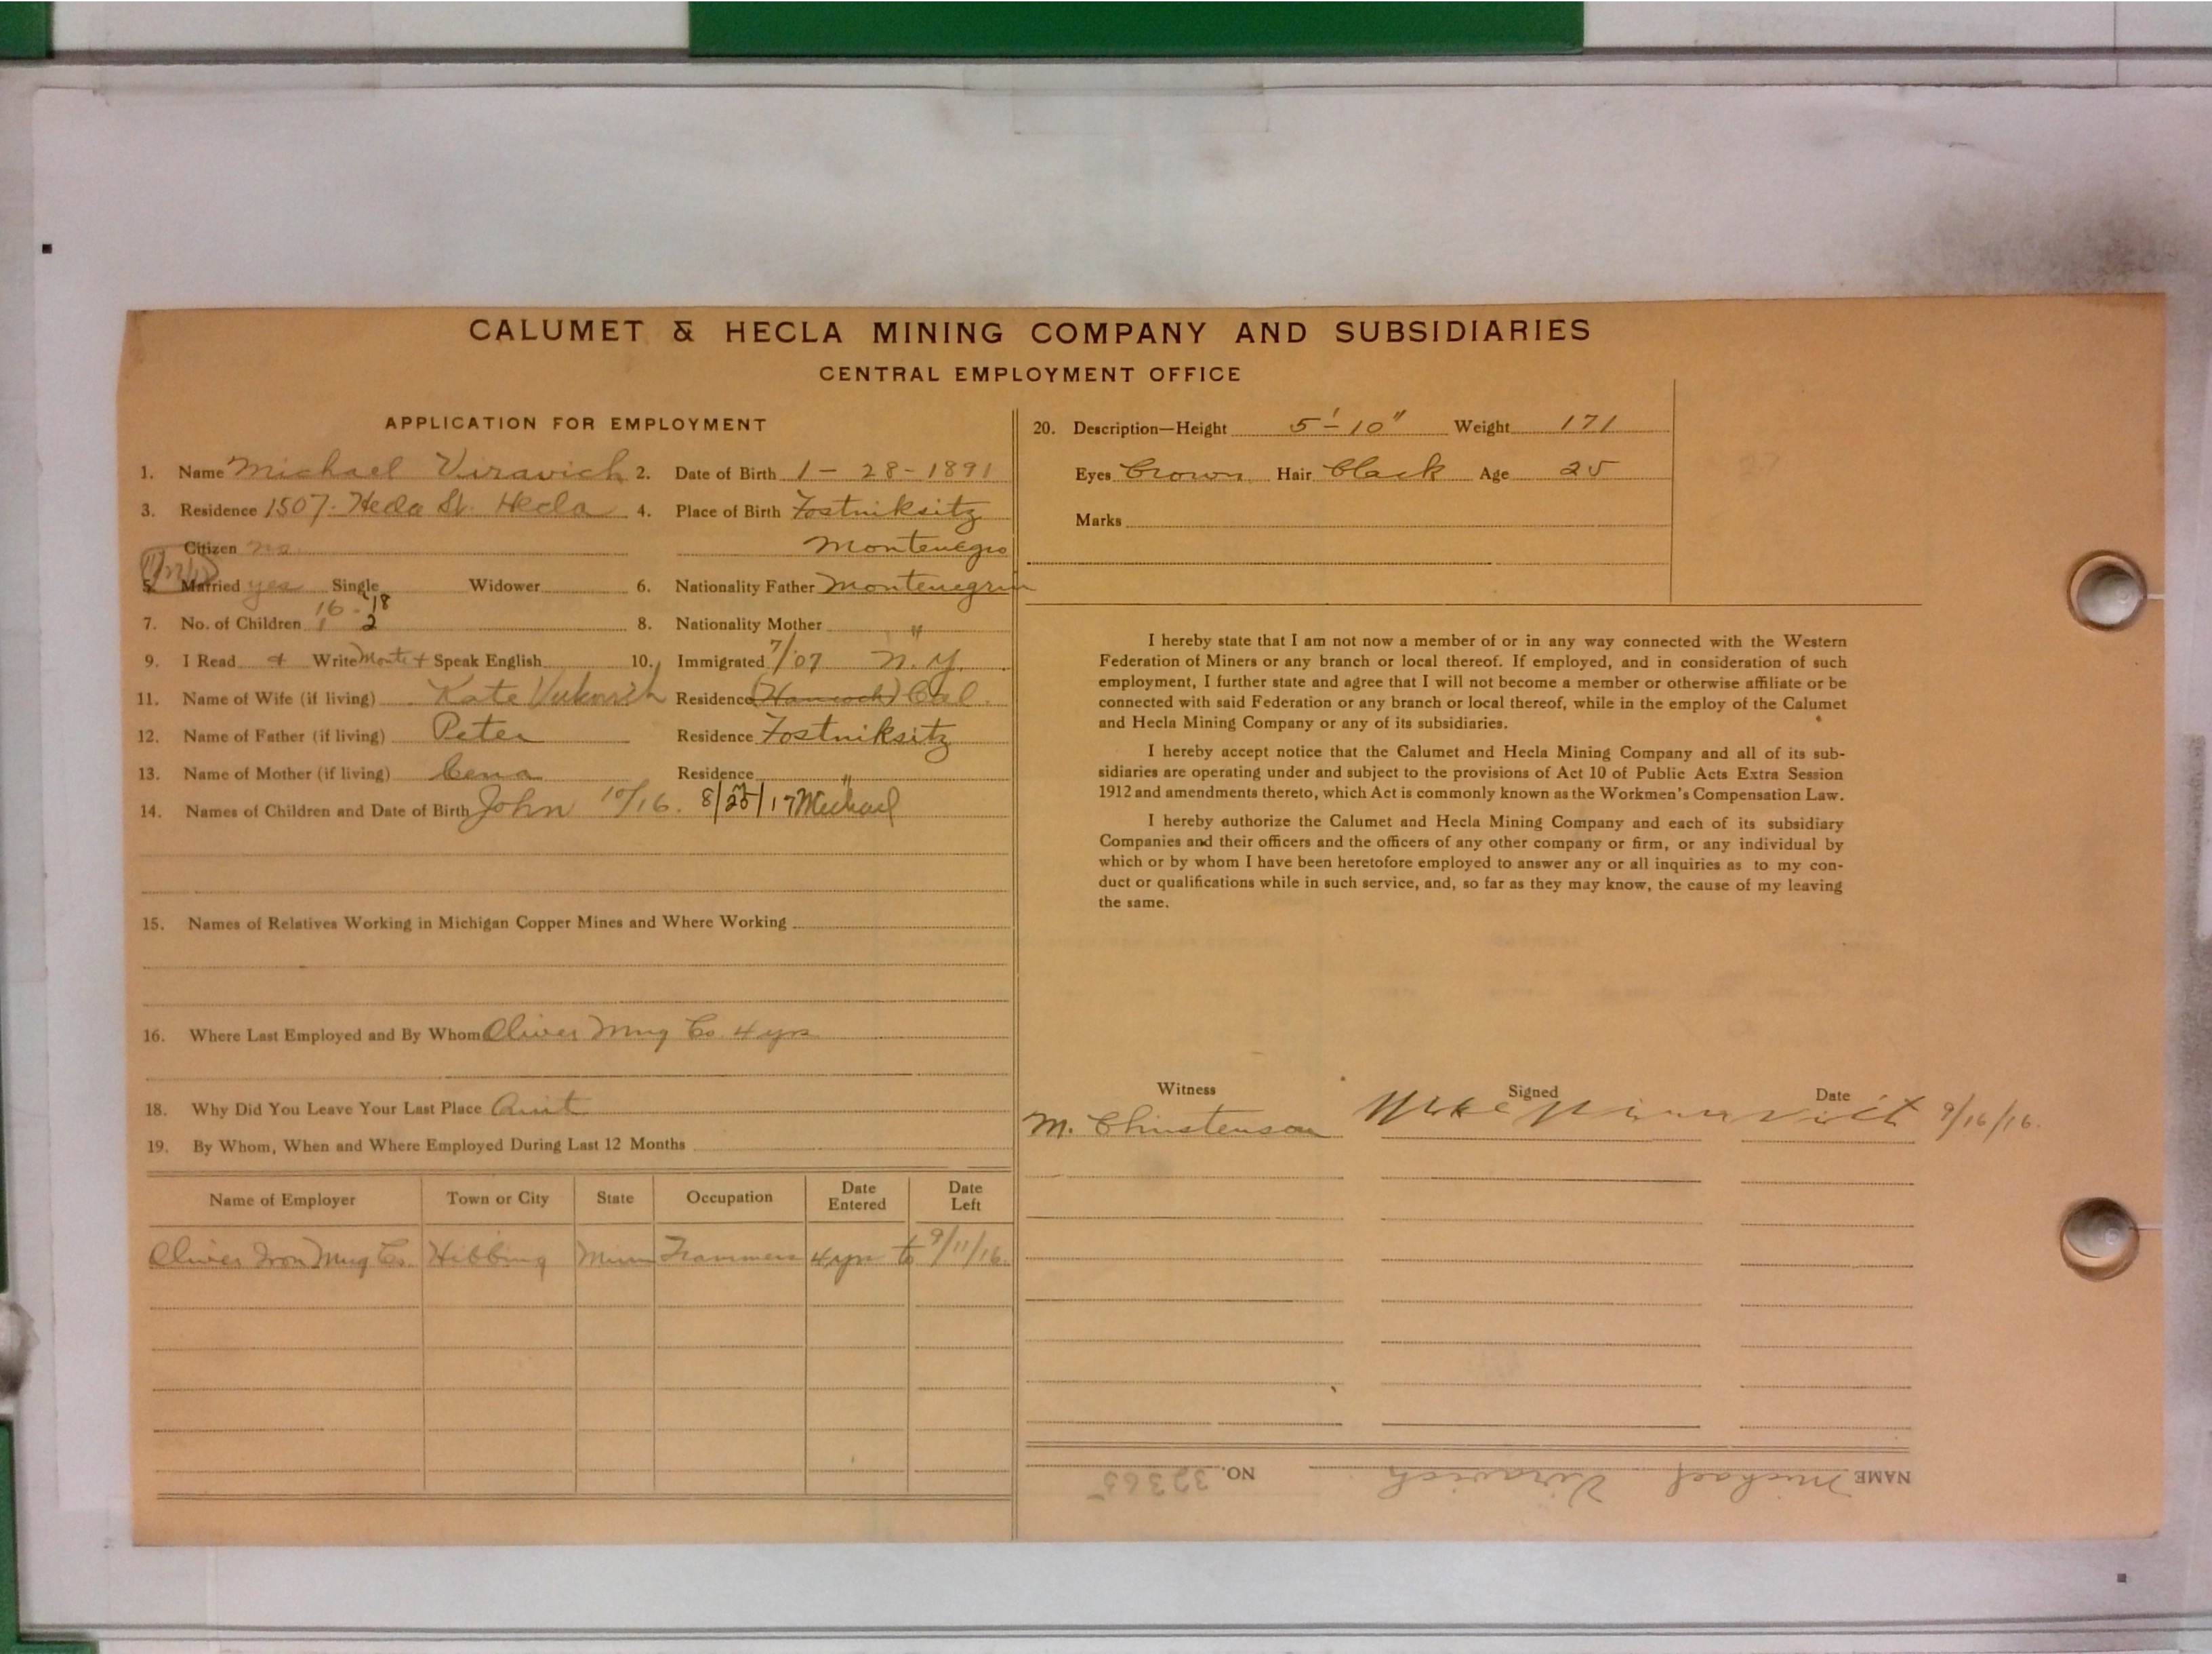 CALUMET & HECLA MINING COMPANY AND SUBSIDIARIES
CENTRAL EMPLOYMENT OFFICE
APPLICATION FOR EMPLOYMENT
1. Name Michael Viravich 2. Date of Birth 1 - 28 - 1891
3. Residence 1507 - Hecla St. Hecla 4. Place of Birth Fostniksitz
Citizen no. Montenegro
5. Married yes Single Widower 6. Nationality Father Montenegrin
16 - 18
7. No. of Children 1 2 8. Nationality Mother "
9. I Read + Write Monte + Speak English 10. Immigrated 7/07 N.Y.
11. Name of Wife (if living) Kate Vukovich Residence (Hancock) Cal.
12. Name of Father (if living) Peter Residence Fostniksitz
13. Name of Mother (if living) Cena Residence "
14. Names of Children and Date of Birth John 10/16. 8/25/17 Michael
15. Names of Relatives Working in Michigan Copper Mines and Where Working
16. Where Last Employed and By Whom Oliver Mng Co. 4 yrs
18. Why Did You Leave Your Last Place Quit
19. By Whom, When and Where Employed During Last 12 Months
Name of Employer Town or City State Occupation Date Entered Date Left
Oliver Iron Mng Co. Hibbing Minn Trammer 4 yrs to 9/11/16.
20. Description—Height 5'-10" Weight 171
Eyes Brown Hair Black Age 25
Marks
I hereby state that I am not now a member of or in any way connected with the Western
Federation of Miners or any branch or local thereof. If employed, and in consideration of such
employment, I further state and agree that I will not become a member or otherwise affiliate or be
connected with said Federation or any branch or local thereof, while in the employ of the Calumet
and Hecla Mining Company or any of its subsidiaries.
I hereby accept notice that the Calumet and Hecla Mining Company and all of its sub-
sidiaries are operating under and subject to the provisions of Act 10 of Public Acts Extra Session
1912 and amendments thereto, which Act is commonly known as the Workmen's Compensation Law.
I hereby authorize the Calumet and Hecla Mining Company and each of its subsidiary
Companies and their officers and the officers of any other company or firm, or any individual by
which or by whom I have been heretofore employed to answer any or all inquiries as to my con-
duct or qualifications while in such service, and, so far as they may know, the cause of my leaving
the same.
Witness Signed Date
M. Christenson 9/16/16.
NAME Michael Viravich NO. 32365